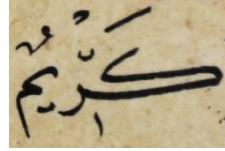 كَرِّيمٌ